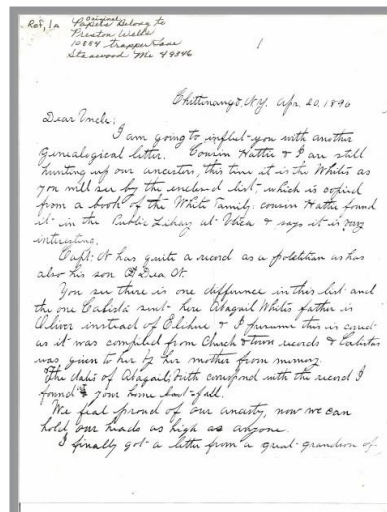 Ref, 1a
original
Papers belong to
Preston Wells
10884 Trapper Lane
Stanwood Mi 49346
1
Chittinango, N.Y. Apr. 20, 1896
Dear Uncle;
I am going to inflict you with another
genealogical letter. Cousin Hattie & I are still
hunting up our ancestors, this time it is the Whites as
you will see by the enclosed list which is copied
from a book of the White family; cousin Hattie found
it in the Public Libary at Utica & says it is very
interesting.
Capt. N has quite a record as a politician as has
also his son Dea N.
You see there is one difference in this list and
the one Calista sent here Abagail Whites father is
Oliver instead of Elihue & I presume this is correct
as it was compiled from Church & town records & Calistas
was given to her by her mother from memory.
The dates of Abagails birth correspond with the record I
found at your home last fall.
We feel proud of our ancestry, now we can
hold our heads as high as anyone.
I finally got a letter from a great-grandson of